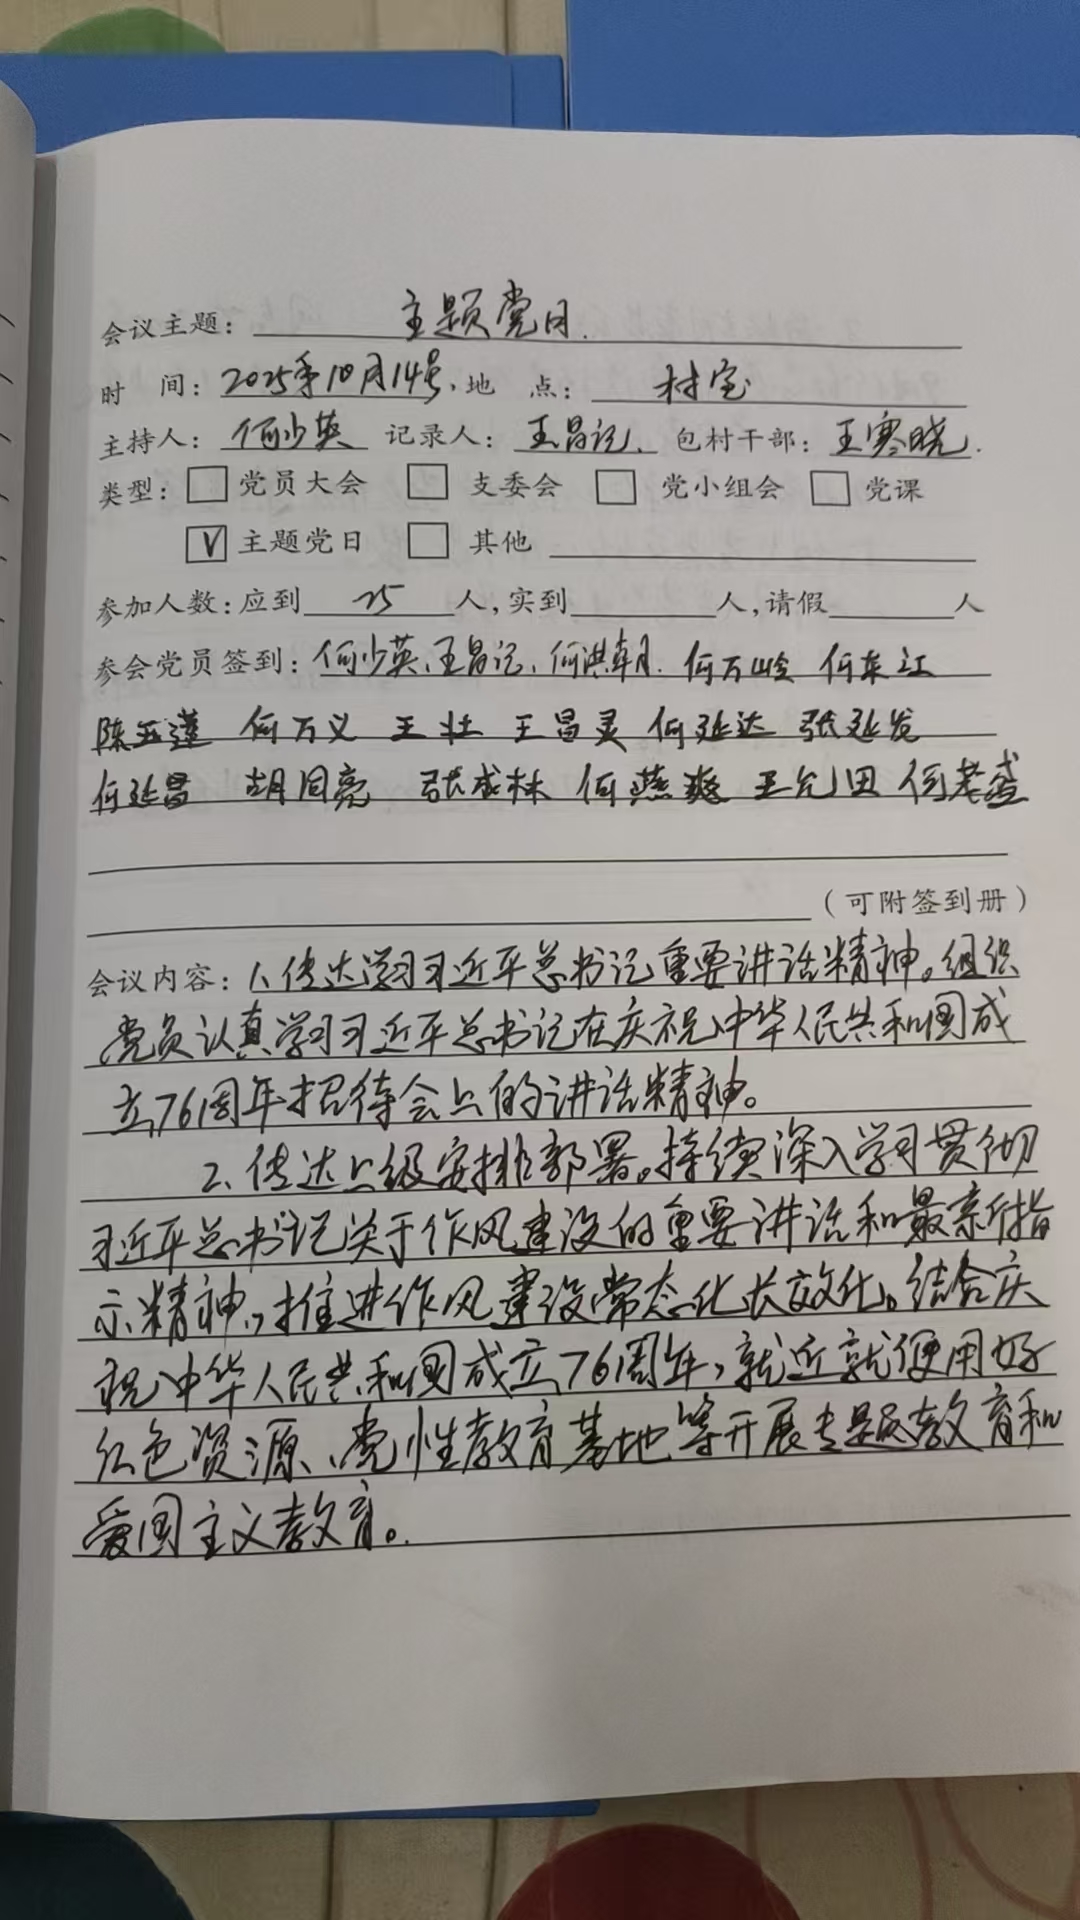 会议主题： 主题党日.
时 间：2025年10月14号. 地 点： 村室
主持人： 何少英 记录人： 王昌记. 包村干部： 王寒晓.
类型：□党员大会 □ 支委会 □ 党小组会 □ 党课
☑ 主题党日 □ 其他
参加人数：应到 25 人，实到 人，请假 人
参会党员签到：何少英、王昌记、何洪朝. 何万岭 何东江
陈玉莲 何万义 王壮 王昌灵 何延达 张延发
何延昌 胡同亮 张成林 何燕爽 王允田 何孝盛
（可附签到册）
会议内容：1、传达学习习近平总书记重要讲话精神。组织
党员认真学习习近平总书记在庆祝中华人民共和国成
立76周年招待会上的讲话精神。
2、传达上级安排部署。持续深入学习贯彻
习近平总书记关于作风建设的重要讲话和最新指
示精神，推进作风建设常态化长效化。结合庆
祝中华人民共和国成立76周年，就近就便用好
红色资源、党性教育基地等开展专题教育和
爱国主义教育。